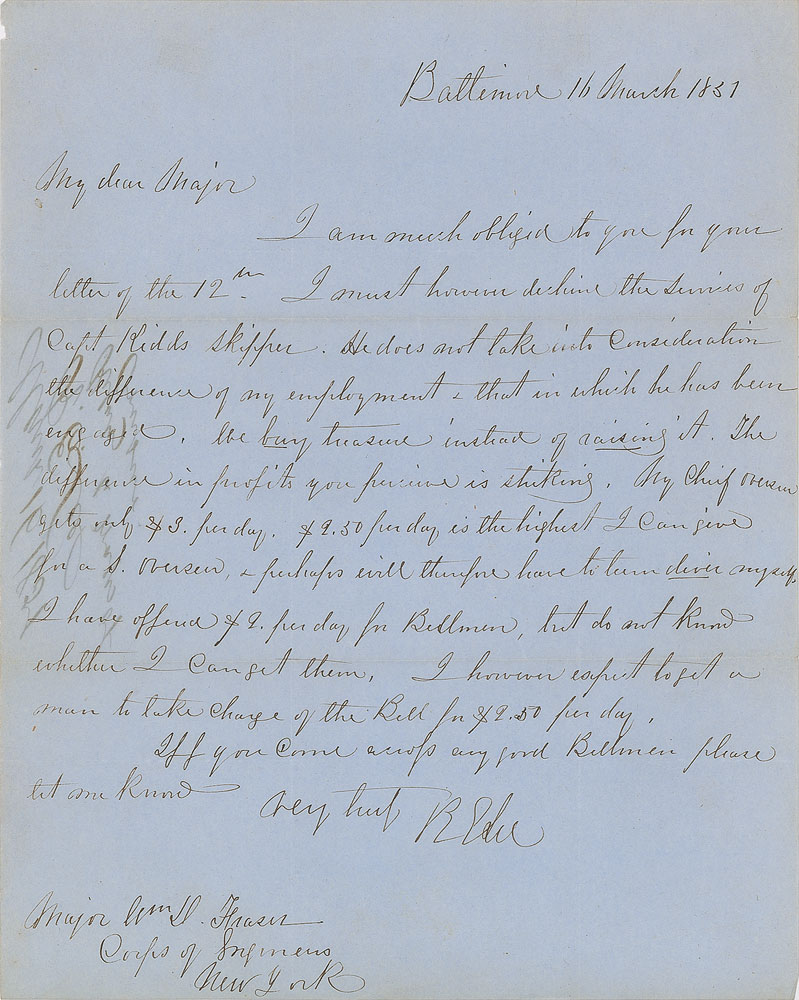 Baltimore 16 March 1851
My dear Major
I am much obliged to you for your
letter of the 12th. I must however decline the services of
Capt Kidds skipper. He does not take into Consideration
the difference of my employment & that in which he has been
engaged. We buy treasure instead of raising it. The
difference in profits you perceive is striking. My Chief overseer
gets only $3. per day. $2.50 per day is the highest I can give
for a S. overseer, & perhaps will therefore have to turn diver myself.
I have offered $2. per day for Bellmen, but do not know
whether I can get them. I however expect to get a
man to take charge of the Bell for $2.50 per day.
Iff you come across any good Bellmen please
let me know
very truly R E Lee
Major Wm D. Fraser
Corps of Engineers
New York